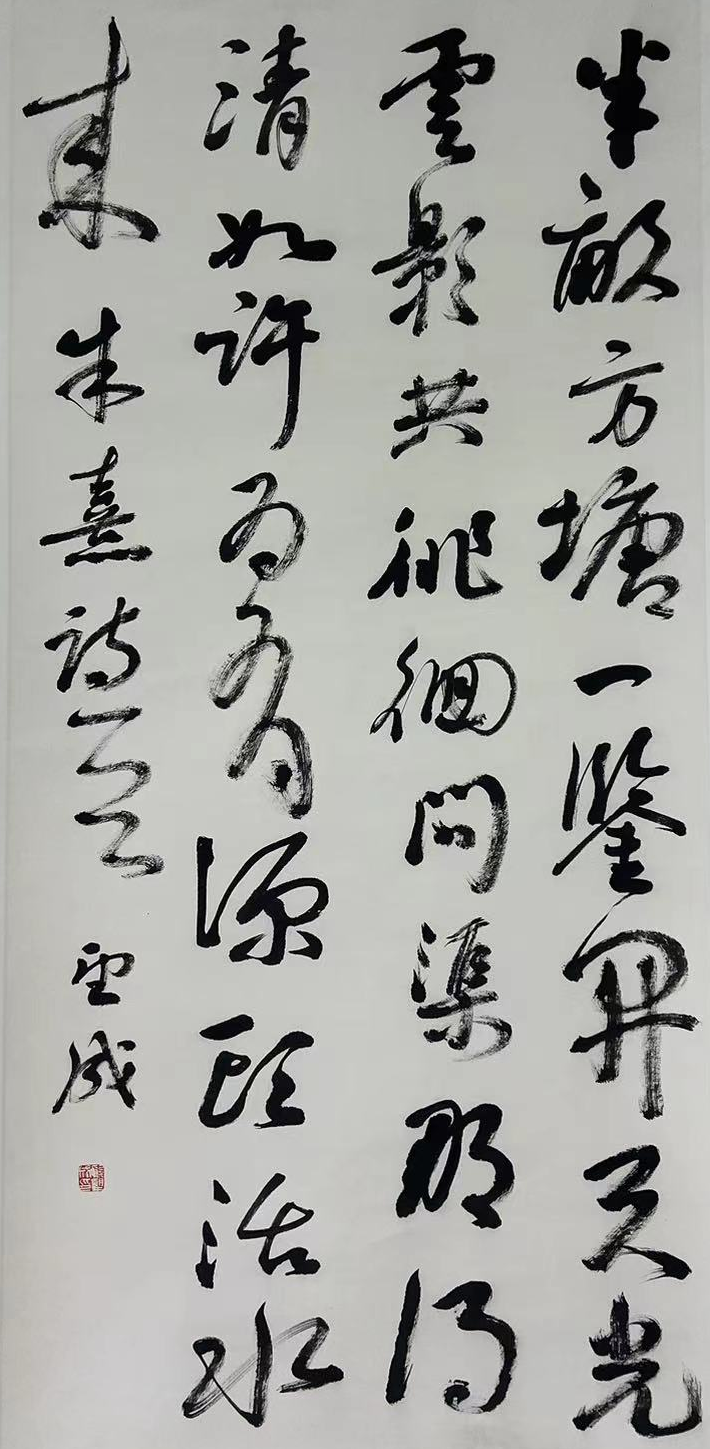 半畝方塘一鑒開天光
雲影共徘徊問渠那得
清如許為有源頭活水
來 朱熹詩一首 成